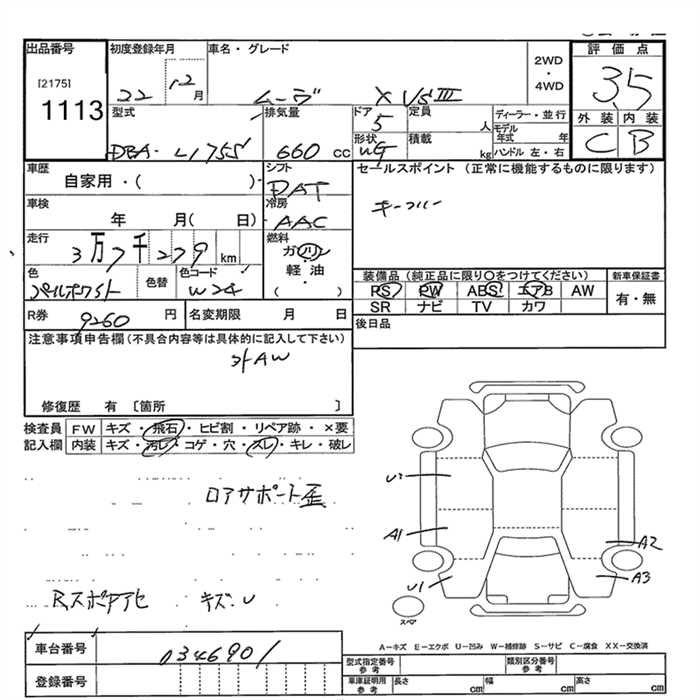 出品番号 初度登録年月 車名・グレード 評価点
[2175] 22 12月 ムーヴ X VS III 2WD・4WD 3.5
1113 型式 排気量 ドア 5 定員 人 ディーラー・並行 外装 内装
モデル年式 年
DBA-L175S 660 cc 形状 積載 kg ハンドル 左・右 C B
車歴 自家用・( )・ シフト DAT セールスポイント (正常に機能するものに限ります)
車検 年 月( 日) 冷房 AAC キーフリー
走行 3万7千279 km 燃料 ガソリン・軽油・( )
色 パールホワイト 色替 色コード W24 装備品 (純正品に限り〇をつけてください) 新車保証書
PS PW ABS エアB AW 有・無
SR ナビ TV カワ
R券 9260 円 名変期限 月 日 後日品
注意事項申告欄 (不具合内容等は具体的に記入して下さい)
外AW
修復歴 有 〔箇所 〕
検査員 FW キズ・飛石・ヒビ割・リペア跡・×要
記入欄 内装 キズ・汚レ・コゲ・穴・スレ・キレ・破レ
ロアサポート歪
U2
A1
A2
U1
A3
Rスポイアセ キズ・U
スペア
A-キズ E-エクボ U-凹み W-補修跡 S-サビ C-腐食 XX-交換済
車台番号 0346901
型式指定番号 参考 類別区分番号 参考
登録番号 車庫証明用 参考 長さ cm 幅 cm 高さ cm